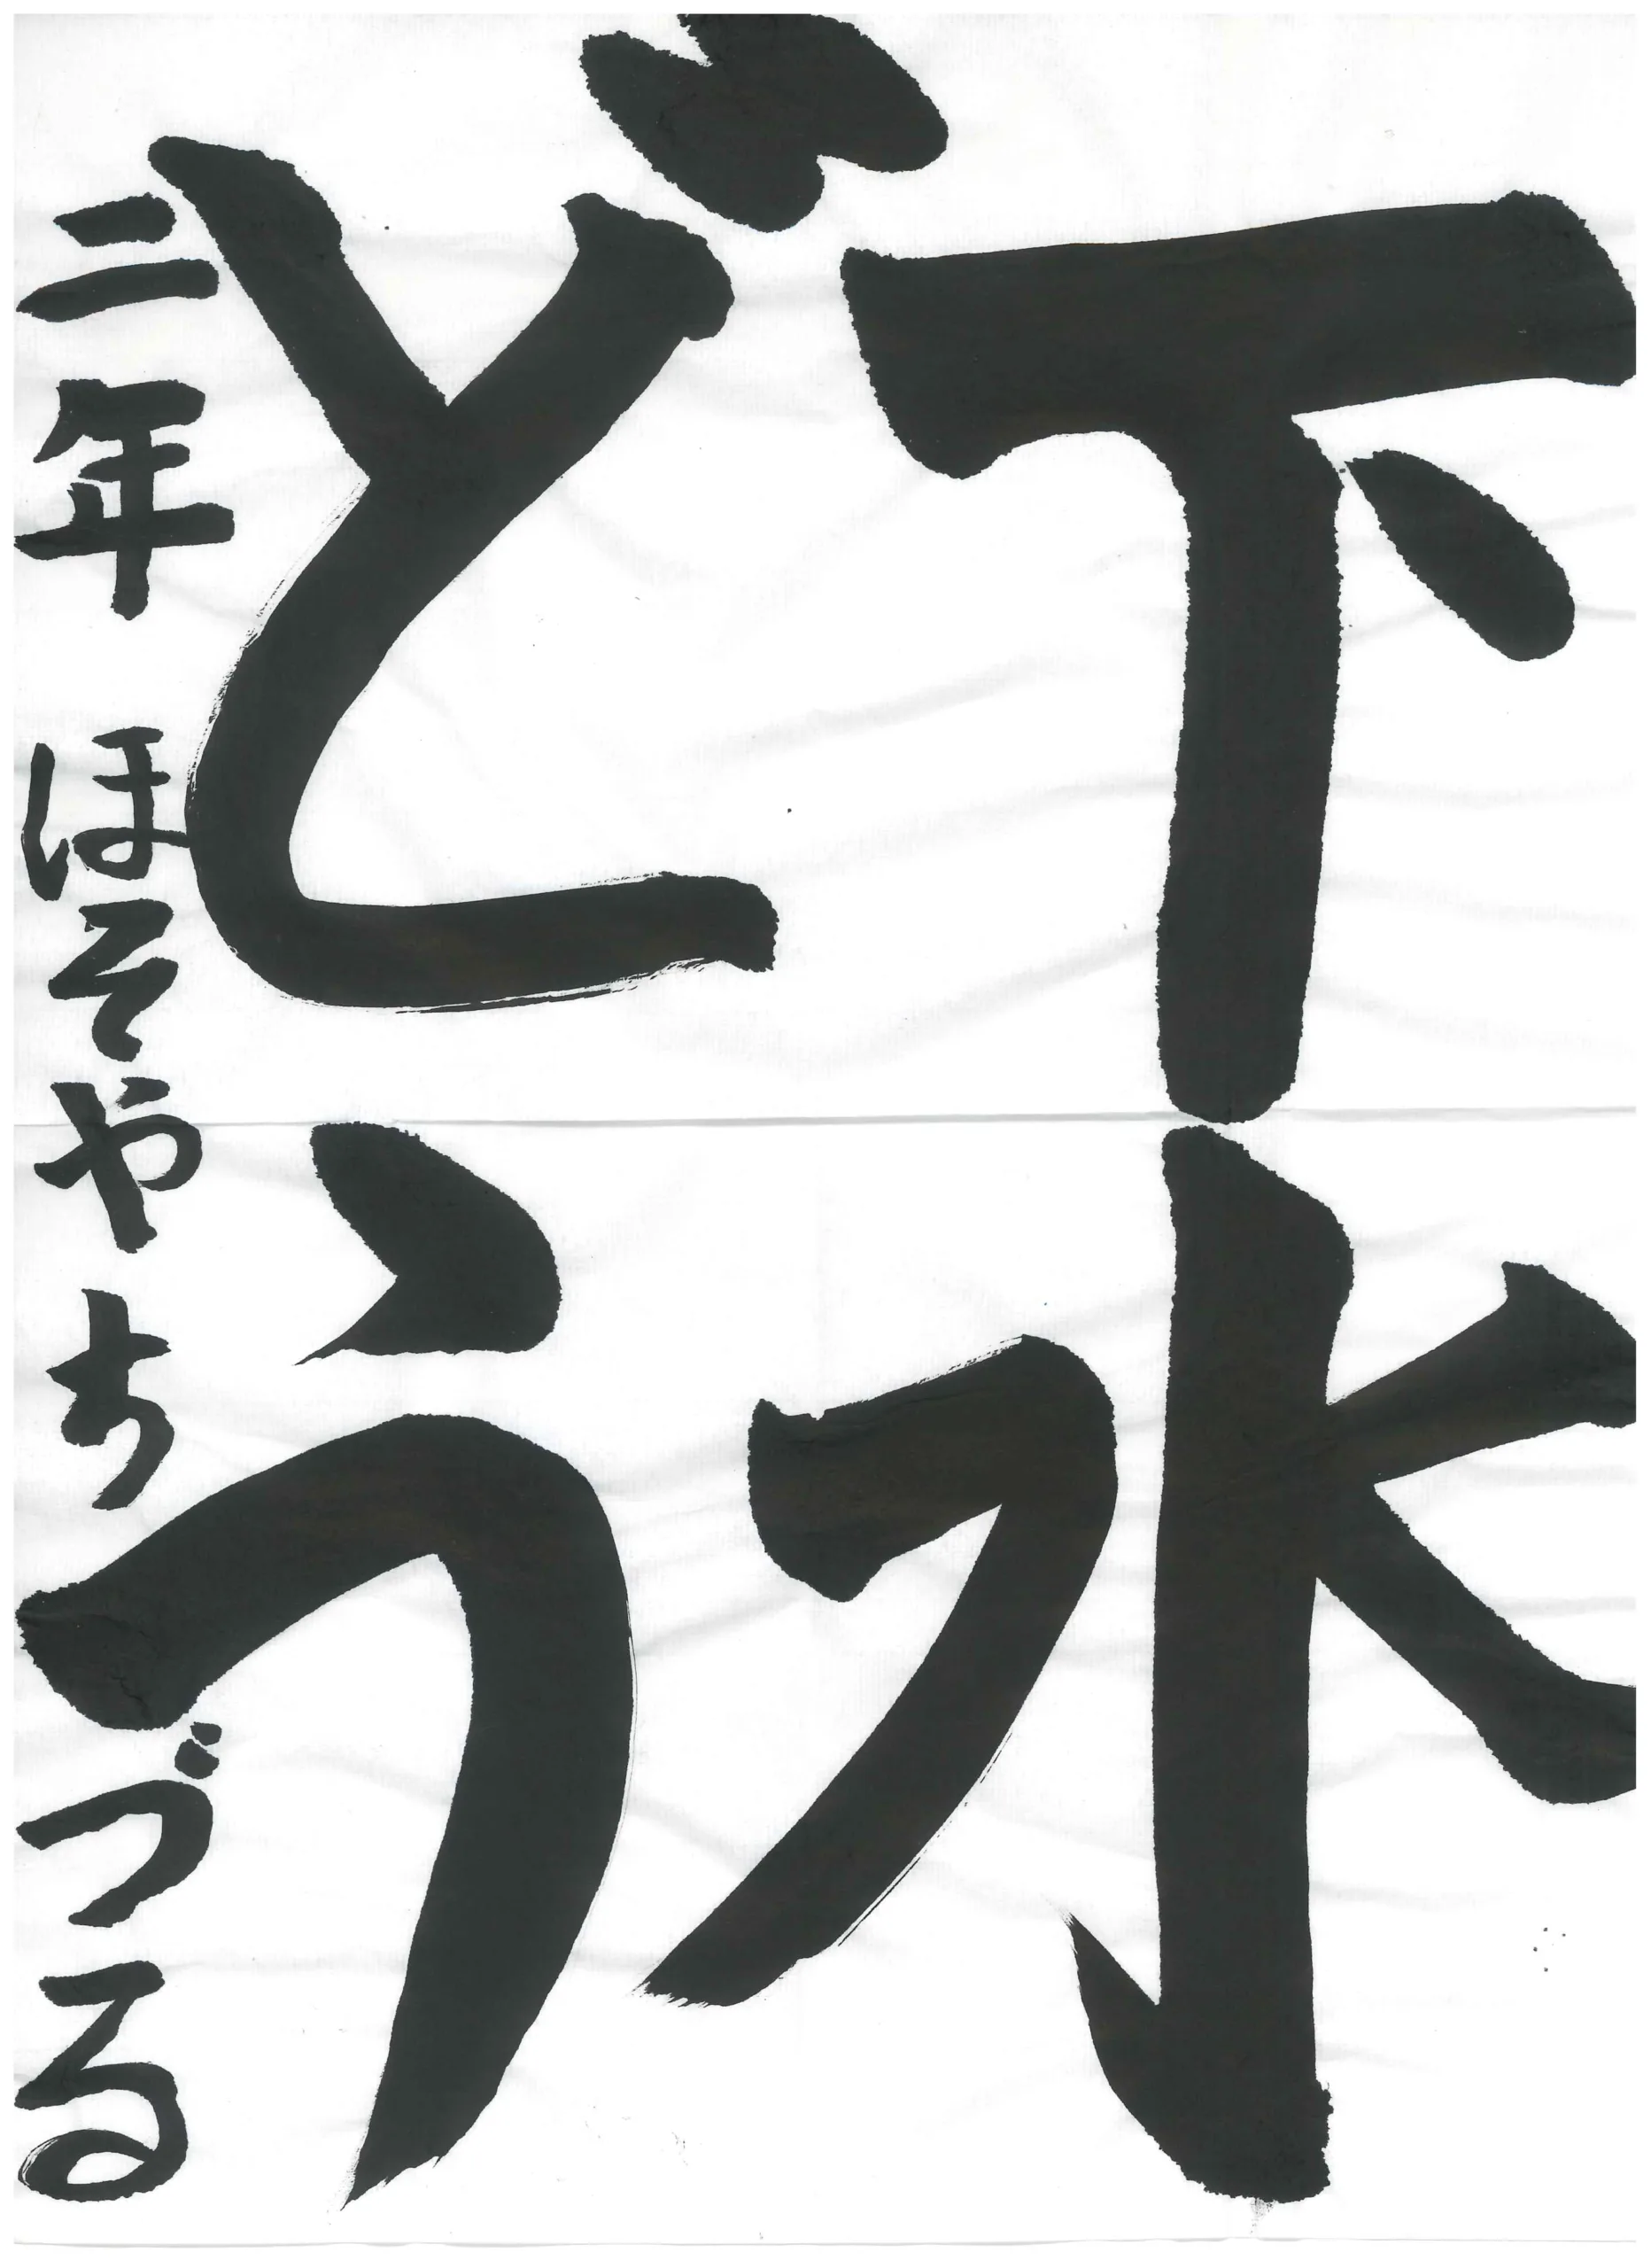 下水
どう
二年 ほそや ちづる